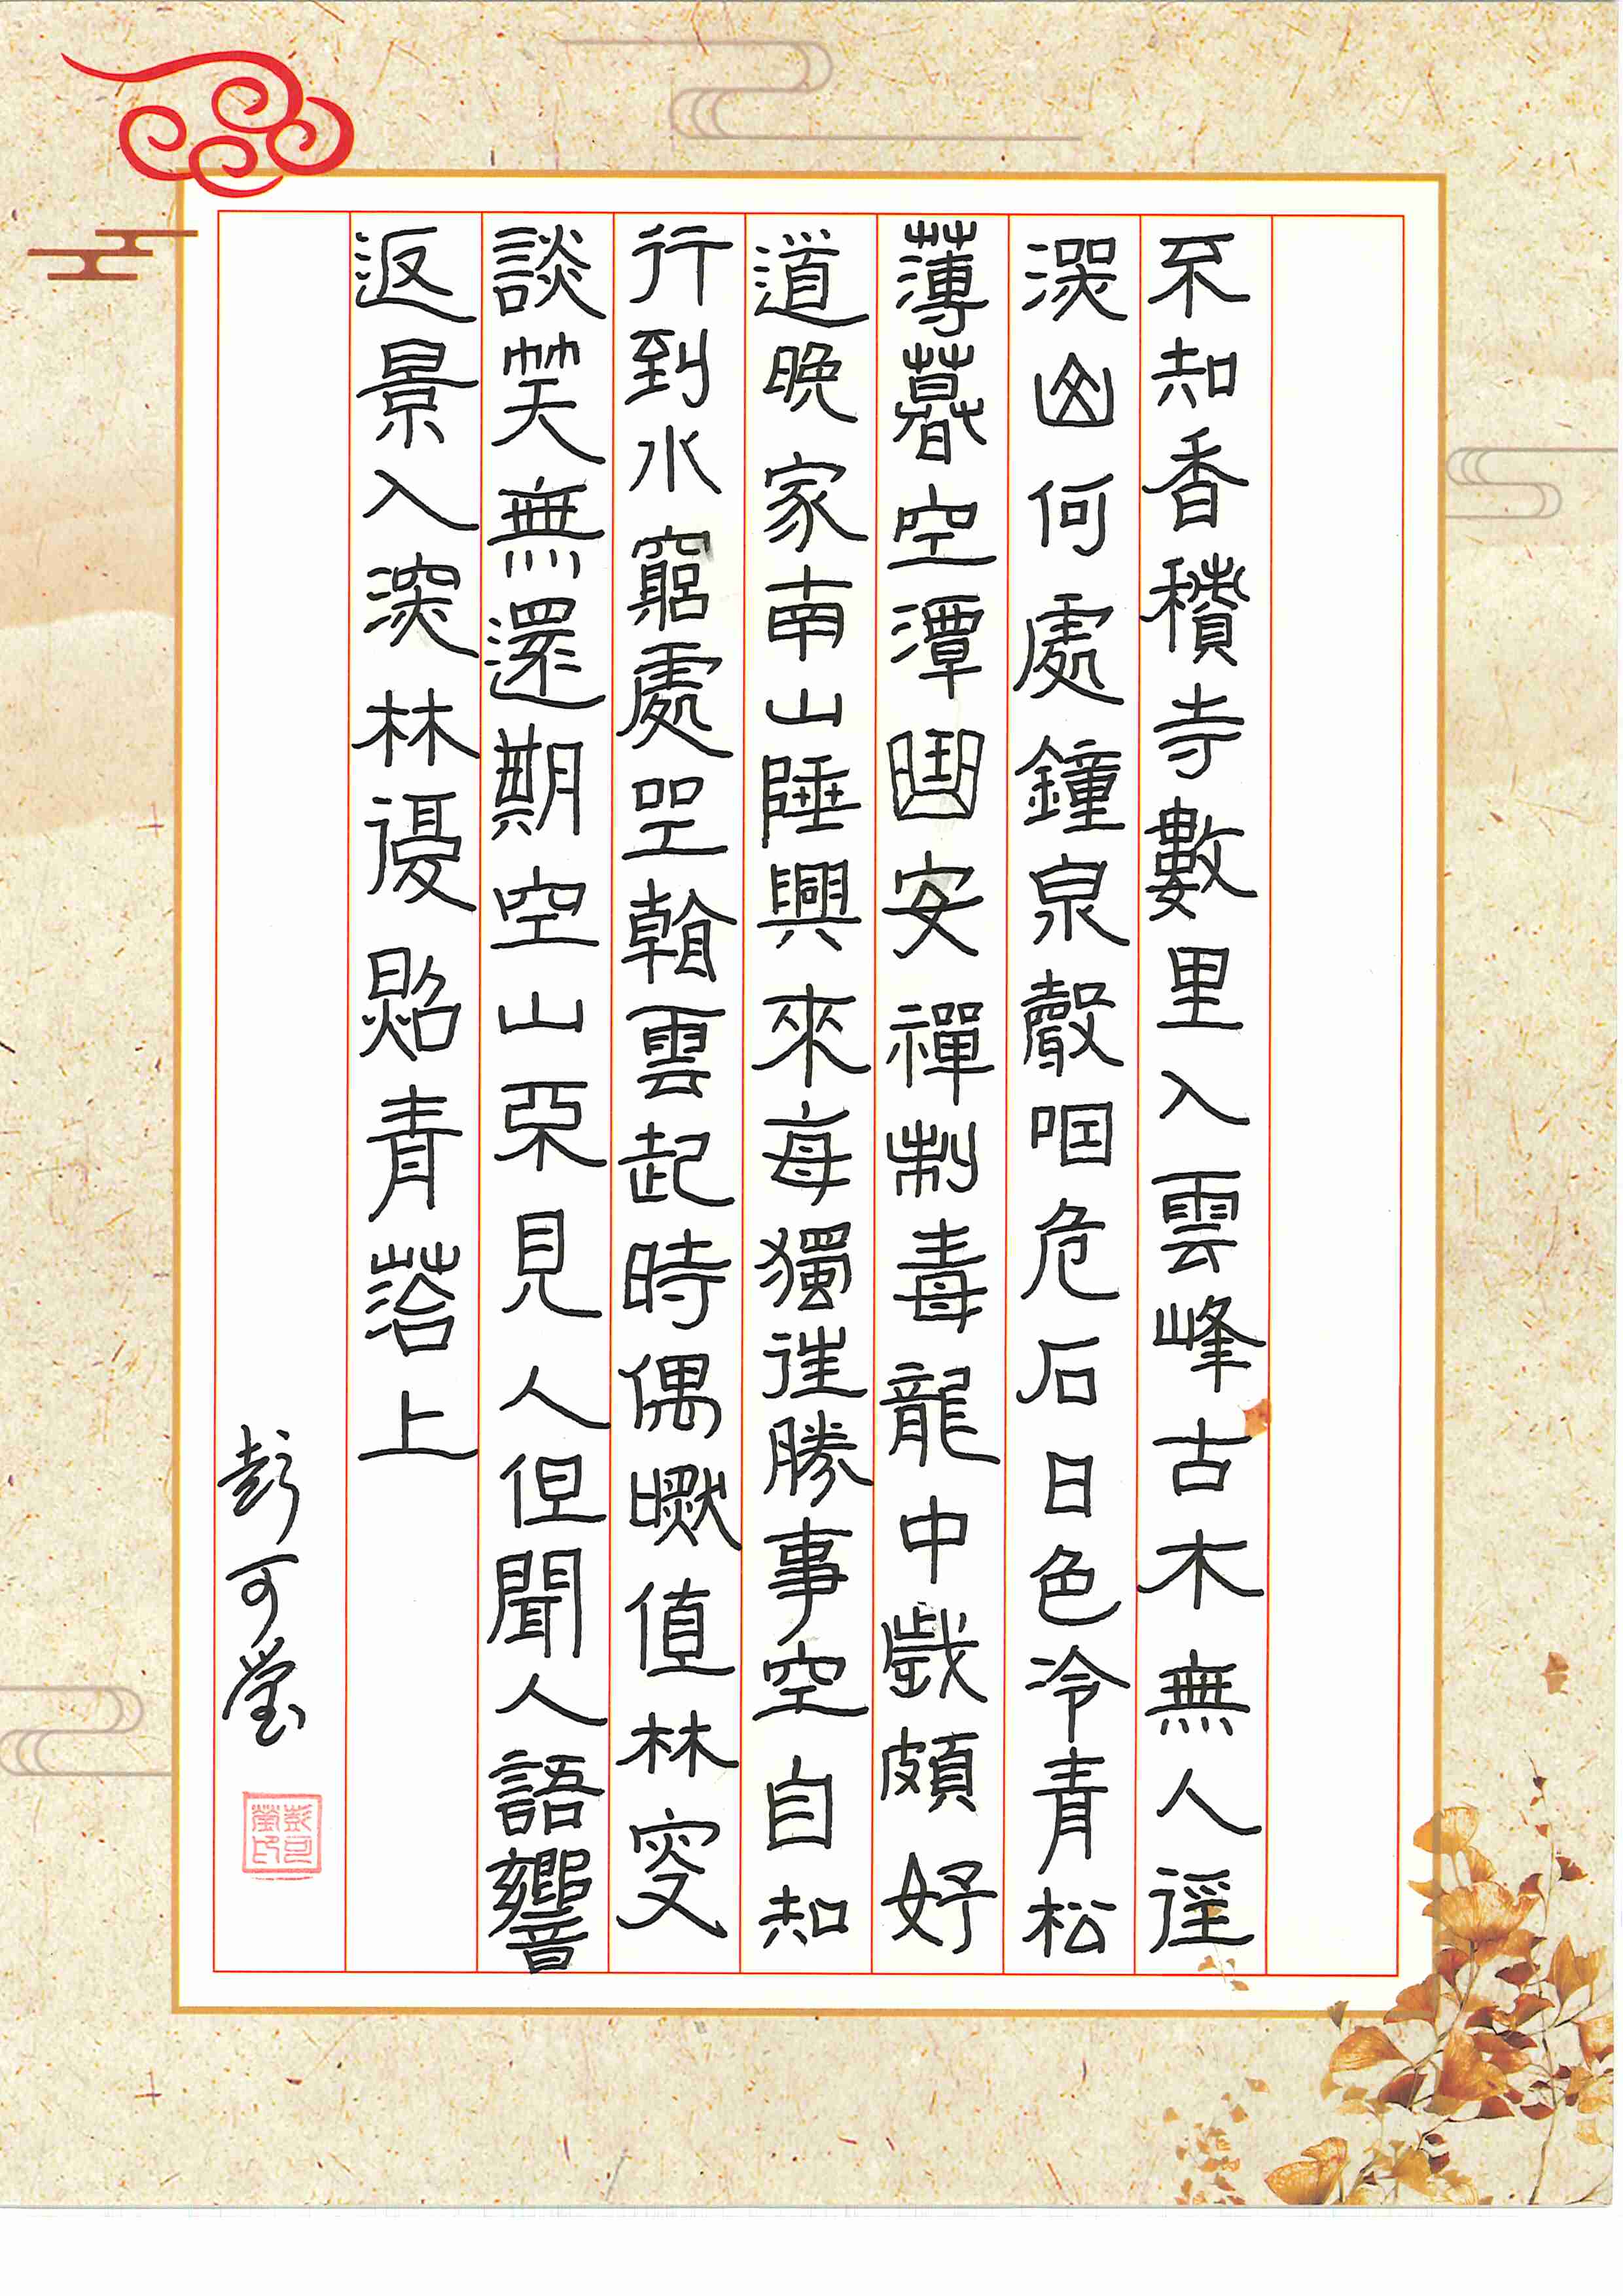 不知香積寺數里入雲峰古木無人徑
深山何處鐘泉聲咽危石日色冷青松
薄暮空潭曲安禪制毒龍中歲頗好
道晚家南山陲興來每獨往勝事空自知
行到水窮處坐看雲起時偶然值林叟
談笑無還期空山不見人但聞人語響
返景入深林復照青苔上
彭可瑩
彭可瑩印